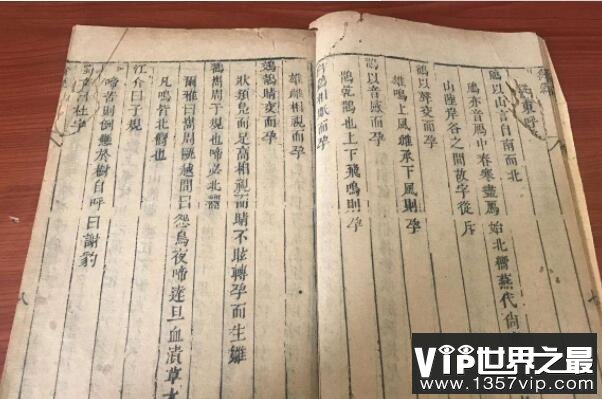 以山言自南而北
亦音鴈中春寒盡鴈始北嚮燕代尚
山陲岸谷之間故字從斥
鶴以聲交而孕
雄鳴上風雌承下風則孕
鵲以音感而孕
鵲乾鵲也上下飛鳴則孕
相眂而孕
雄雌相視而孕
鵁鶄睛交而孕
狀類鳧而足高相視而睛不眩轉孕而生雛
巂周子規也啼必北嚮
爾雅曰巂周甌越間曰怨鳥夜啼達旦血漬草木
凡鳴皆北嚮也
江介曰子規
啼苦則倒懸於樹自呼曰謝豹
蜀右曰杜宇
VIP世界之最
www.1357vip.com